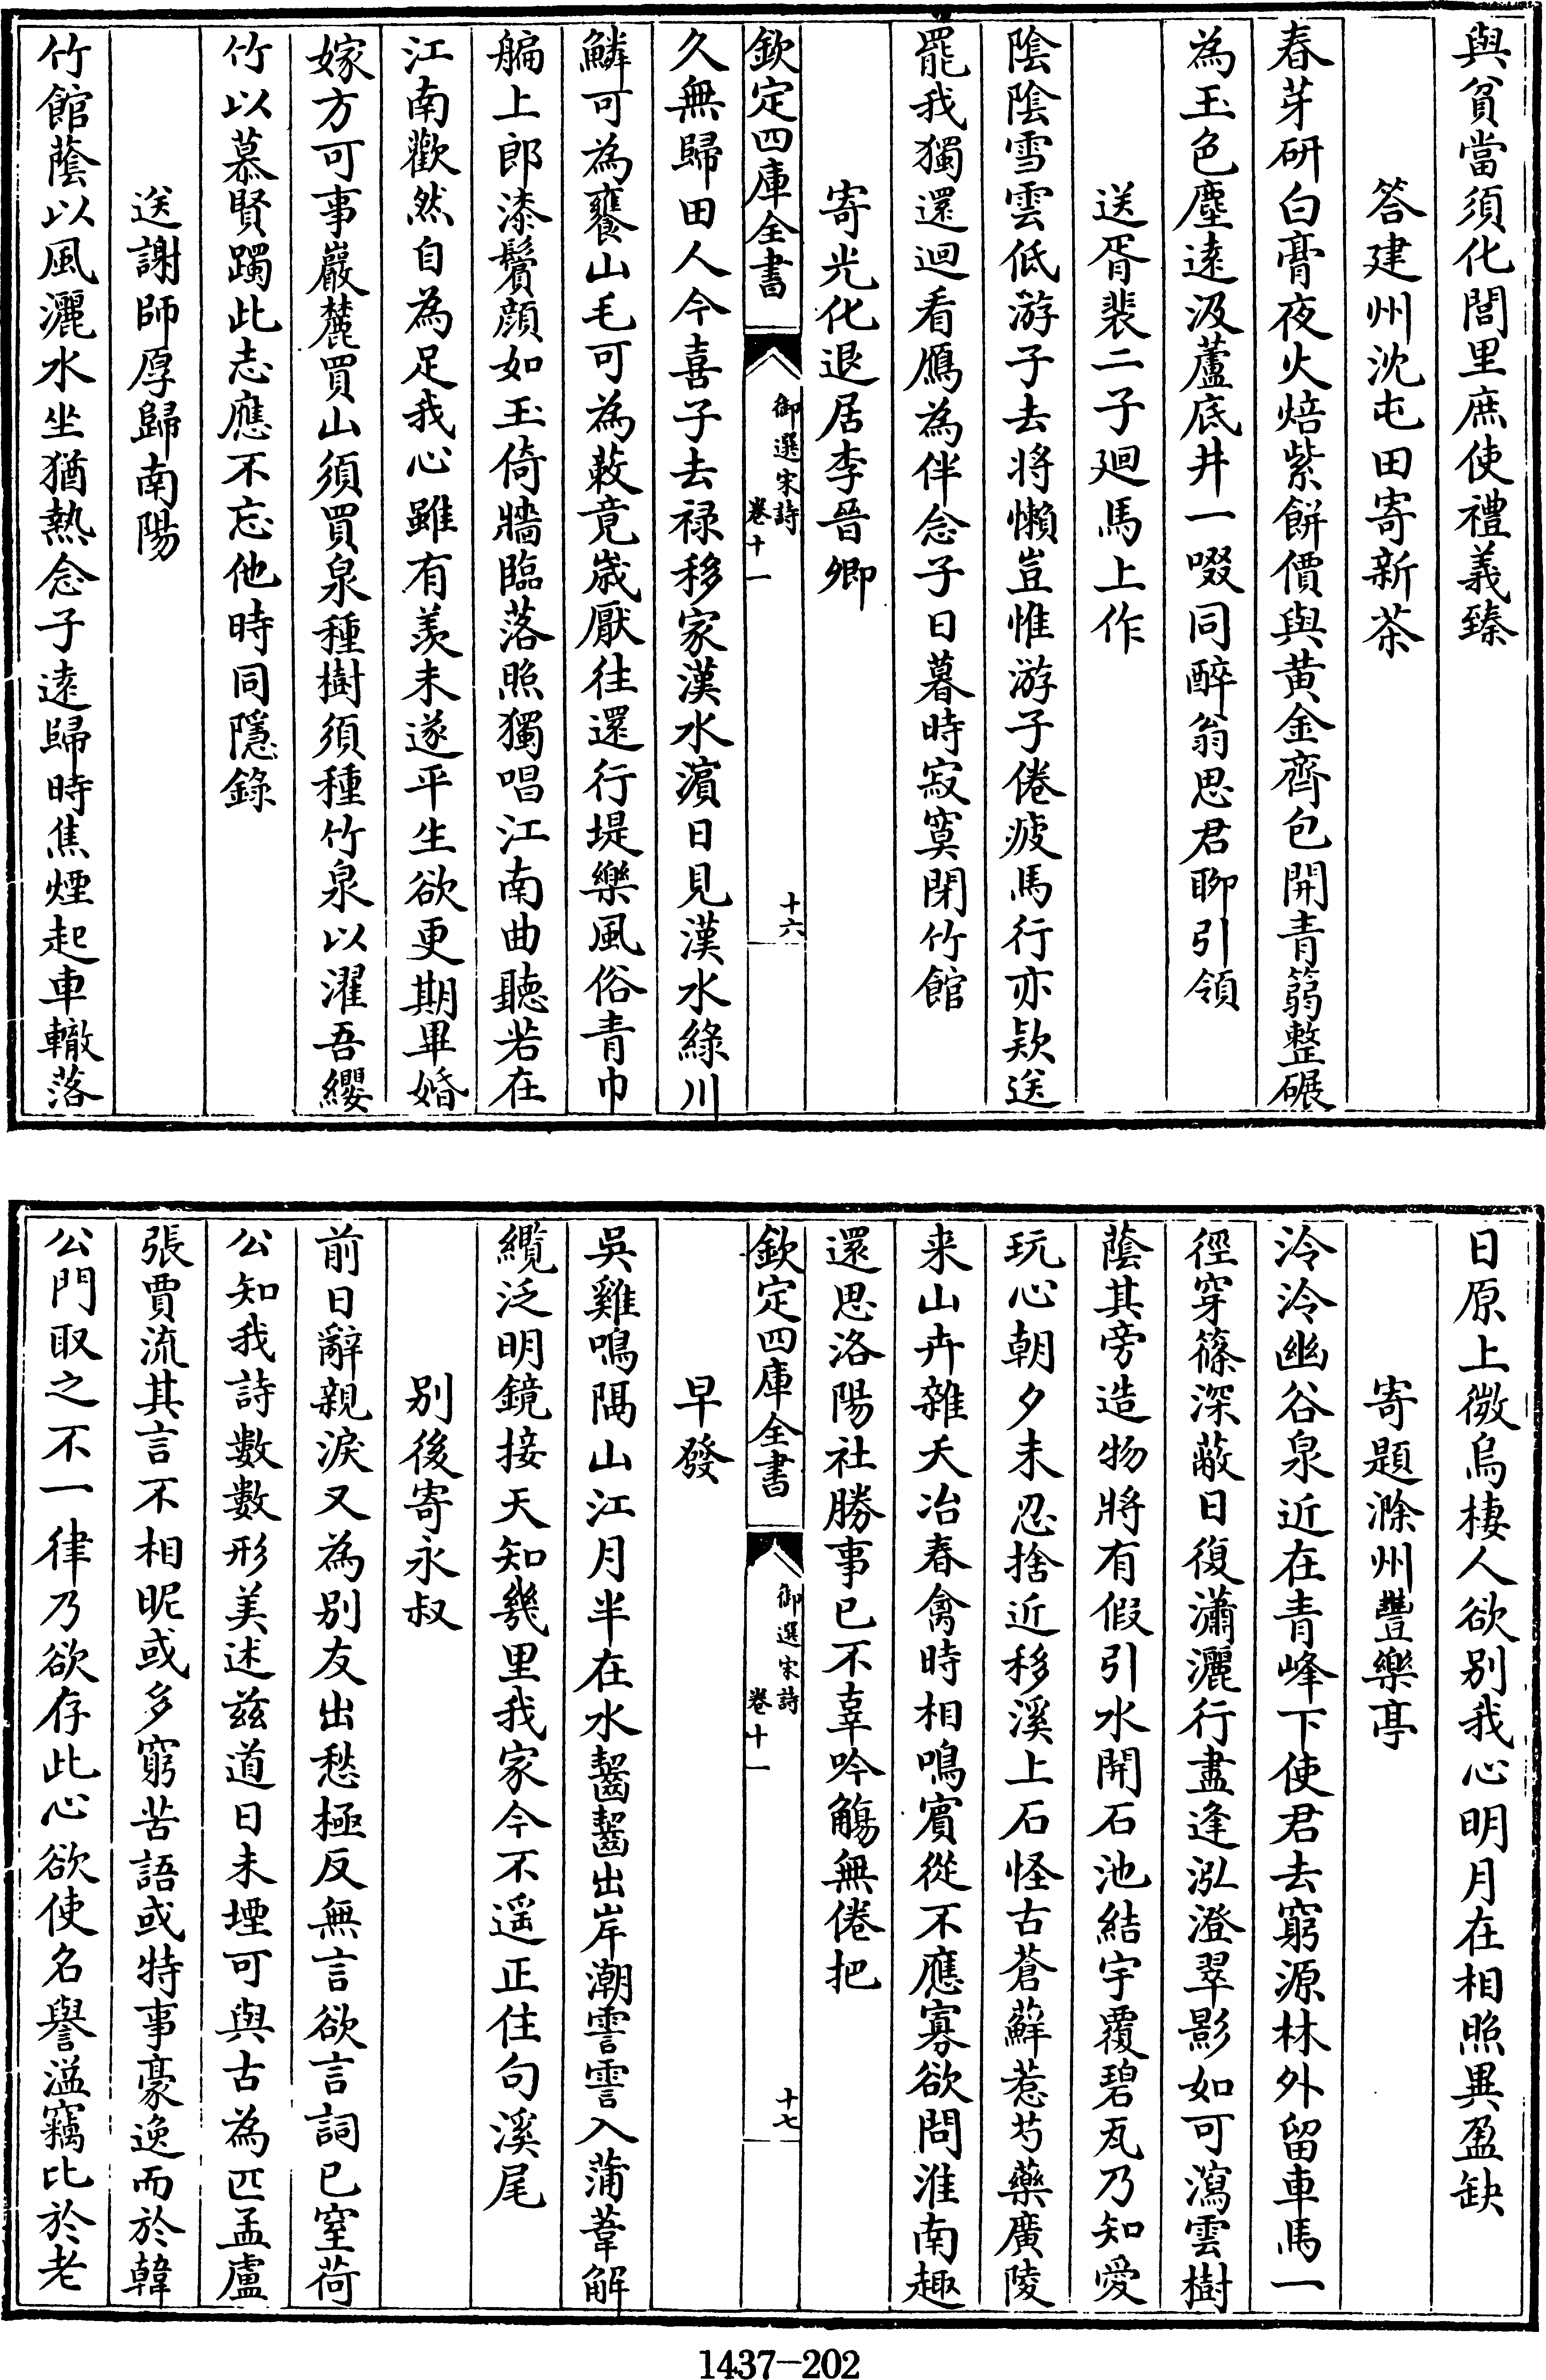 與貧當須化閭里庶使禮義臻
答建州沈屯田寄新茶
春芽研白膏夜火焙紫餅價與黃金齊包開青箬整碾
為玉色塵遠汲蘆底井一啜同醉翁思君聊引領
送胥裴二子迴馬上作
陰陰雪雲低游子去將懶豈惟游子倦疲馬行亦款送
罷我獨還迴看鴈為伴念子日暮時寂寞閉竹館
寄光化退居李晉卿
欽定四庫全書
御選宋詩
卷十一
十六
久無歸田人今喜子去祿移家漢水濵日見漢水綠川
鱗可為饔山毛可為蔌竟嵗厭往還行堤樂風俗青巾
艑上郎漆鬢顔如玉倚牆臨落照獨唱江南曲聽若在
江南歡然自為足我心雖有羨未遂平生欲更期畢婚
嫁方可事巖麓買山須買泉種樹須種竹泉以濯吾纓
竹以慕賢躅此志應不忘他時同隱錄
送謝師厚歸南陽
竹館蔭以風灑水坐猶熱念子遠歸時焦煙起車轍落
日原上微烏棲人欲別我心明月在相照異盈缺
寄題滁州豐樂亭
泠泠幽谷泉近在青峰下使君去窮源林外留車馬一
徑穿篠深蔽日復瀟灑行盡逢泓澄翠影如可瀉雲樹
蔭其旁造物將有假引水開石池結宇覆碧瓦乃知愛
玩心朝夕未忍捨近移溪上石怪古蒼蘚惹芍藥廣陵
来山卉雜夭冶春禽時相鳴賓從不應寡欲問淮南趣
還思洛陽社勝事已不辜吟觴無倦把
欽定四庫全書
御選宋詩
卷十一
十七
早發
吳雞鳴隔山江月半在水齧齧出岸潮霅霅入蒲葦解
纜泛明鏡接天知幾里我家今不遥正住句溪尾
別後寄永叔
前日辭親淚又為别友出愁極反無言欲言詞已窒荷
公知我詩數數形美述兹道日未堙可與古為匹孟盧
張賈流其言不相昵或多窮苦語或特事豪逸而於韓
公門取之不一律乃欲存此心欲使名譽溢竊比於老
1437-202